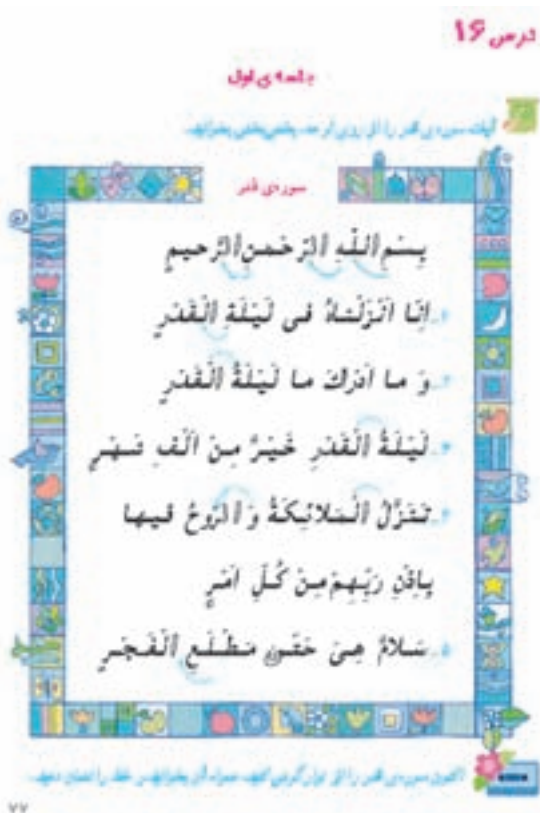 درس ۱۶
جلسه‌ی اول
آیات سوره‌ی قدر را از روی لوحه، بخش‌بخش بخوانید.
سوره‌ی قدر
بِسْمِ اللّٰهِ الرَّحْمٰنِ الرَّحیمِ
۱ـ اِنّا اَنْزَلْناهُ فی لَیْلَةِ الْقَدْرِ
۲ـ وَ ما اَدْرٰكَ ما لَیْلَةُ الْقَدْرِ
۳ـ لَیْلَةُ الْقَدْرِ خَیْرٌ مِنْ اَلْفِ شَهْرٍ
۴ـ تَنَزَّلُ الْمَلائِكَةُ وَ الرّوحُ فیها
بِاِذْنِ رَبِّهِمْ مِنْ كُلِّ اَمْرٍ
۵ـ سَلامٌ هِیَ حَتّٰی مَطْلَعِ الْفَجْرِ
اکنون سوره‌ی قدر را از نوار گوش کنید، همراه آن بخوانید و خط را نشان دهید.
۷۷